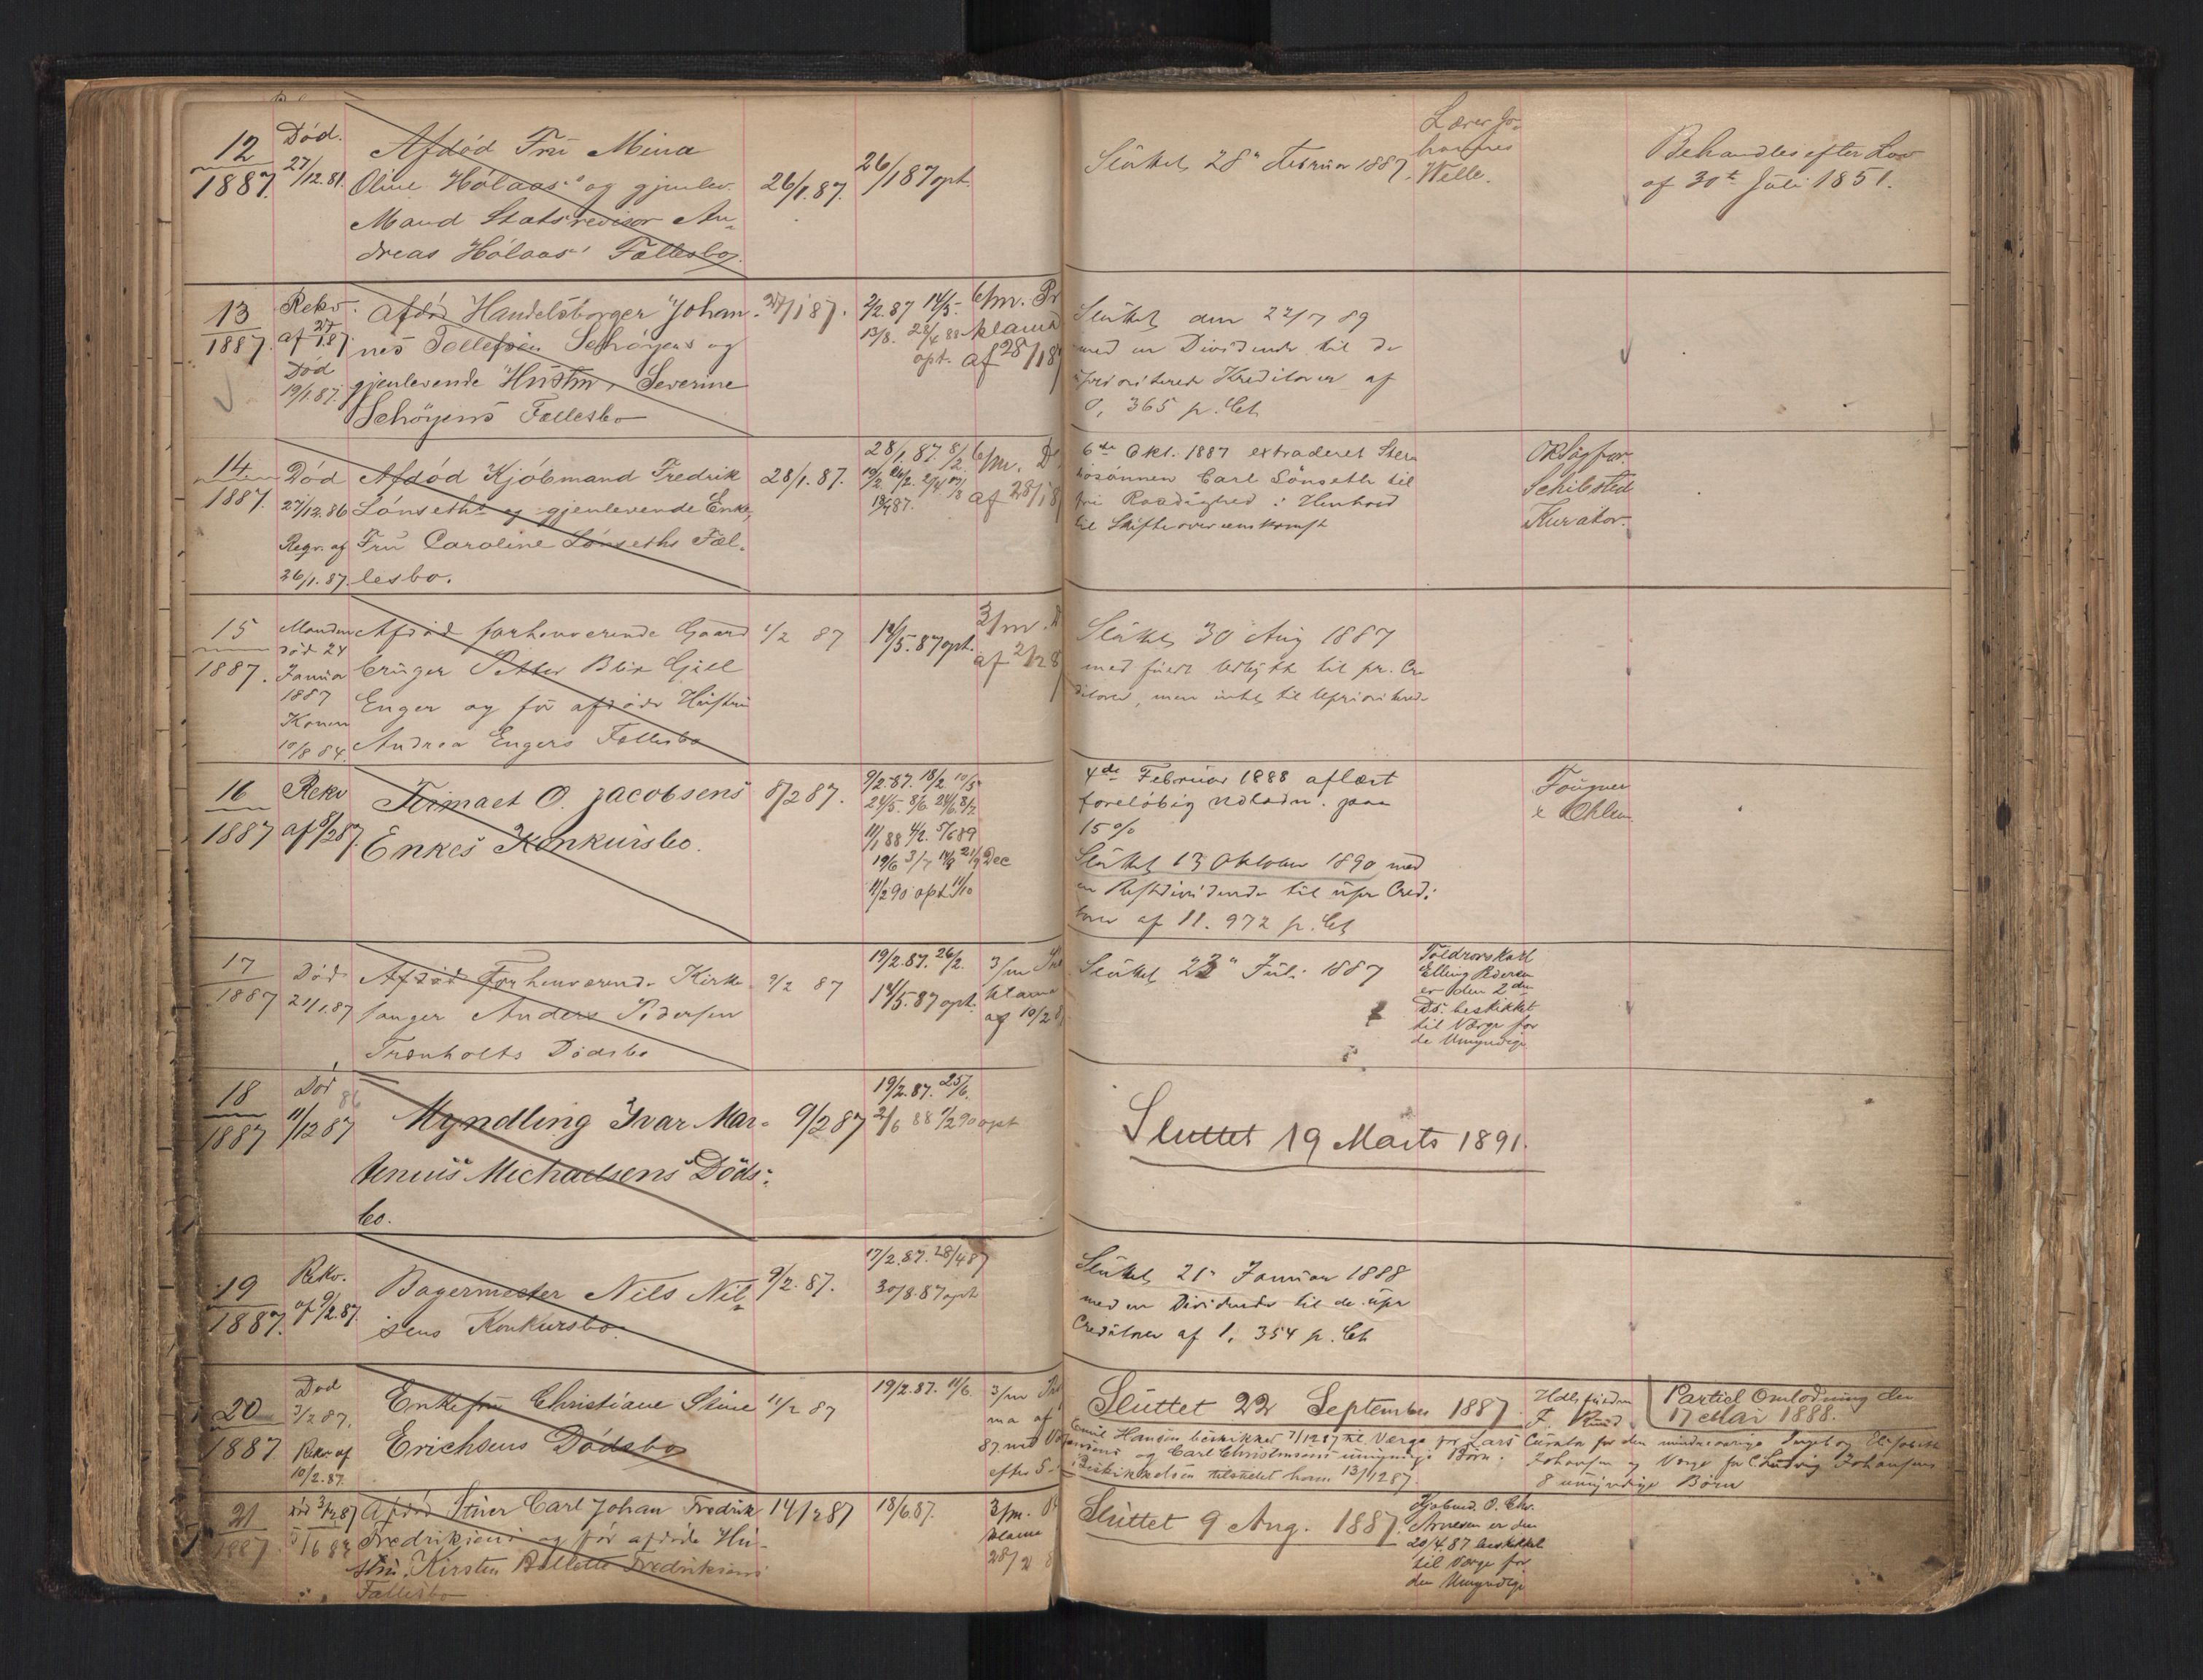 12
1887.
Død.
27/12.81.
Afdød Fru Mina
Oline Hólaas' og gjenlev.
Mand Statsrevisor An-
dreas Hólaas' Fællesbo.
26/1.87.
26/187 opt.
Slúttet 28de Februar 1887.
Lærer Jo-
hannes
Welle.
Behandles efter Lov
af 30te Juli 1851.
13
1887.
Rekv.
af 27/187.
Død
19/1.87.
Afdød Handelsborger Johan-
nes Tollefsen Schóyens og
gjenlevende Hústru, Severine
Schöyens Fællesbo
27/187.
2/2.87 14/5.
13/8. 28/4 88
opt.
6/m. Pr
klama
af 28/18
Slúttet den 22/7 89
med en Dividende til de
úprioriterede Kreditorer af
0,365 p. Ct.
14
1887.
Død
27/12.86
Reqv. af
26/1.87.
Afdød Kjóbmand Fredrik
Lónseths og gjenlevende Enke,
Frú Caroline Lónseths Fæl-
lesbo.
28/1.87.
28/1.87. 8/2.
6/m.
af 28/18
6te Okt. 1887 extraderet Sterv-
bosónnen Carl Lónseth til
fri Raadighed i Henhold
til Skifteoverenskomst
ORSagfør.
Schibsted
Kurator.
15
1887.
Manden
død 24
Januar
1887
Konen
10/8 84.
Afdød forhenværende Gaard-
brúger Petter Blix Gjell
Enger og før afdøde Hústru
Andrea Engers Fællesbo
1/2 87
14/5.87 opt.
3/m.
af 2/2 8
Slúttet 30 Aúg 1887
med fúldt Udbytte til pr. Cre-
ditorer, men intet til Uprioriterede
16
1887
Rekv
af 8/287.
Firmaet O. Jacobsens
Enkes Konkúrsbo.
8/287.
9/2.87. 18/2 10/5
24/5. 8/6. 24/6 8/7.
11/1 88 4/2. 5/689
19/6 3/7 14/9 21/9 Dec
11/290 opt 11/10
4de Februar 1888 aflæst
foreløbig Udlodn. paa
15 %
Slúttet 13 Oktober 1890 med
en Restdividende til úpr Cred:
torer af 11.972 p. Ct
Foúgner
& Ohlen
17
1887
Død
21/1.87
Afdød Forhenværende Kirke
sanger Anders Pedersen
Trónholts Dødsbo
9/2 87
19/2.87. 26/2.
14/5.87 opt.
3/m
klama
af 10/2 8
Slúttet 23de Júli 1887
Toldrorskarl
Elling Pedersen
er den 2den
Ds. beskikket
til Værge for
de Umyndige
18
1887
Død 86
11/12 87
Myndling Ivar Mar-
tenius Michaelsens Döds-
bo.
9/287
19/2.87. 25/6.
2/6 88 1/2 90 opt
Sluttet 19 Marts 1891.
19
1887.
Rekv.
af 9/2.87.
Bagermester Nils Nil-
sens Konkursbo.
9/2.87.
17/2.87. 28/487
30/8.87 opt
Slúttet 21de Januar 1888
med en Dividende til de úpr
Creditorer af 1,354 p. Ct
20
1887
Død
3/2 87.
Rekv. af
10/2.87.
Enkefru Christiane Stine
Erichsens Dødsbo
11/2 87
19/2.87. 11/6.
3/m Pro
ma af
87. med
efter 5
Slúttet 22 September 1887
Emil Hansen beskikket 7/1287 til Værge for Lars
og Carl Christensens úmyndige Börn.
Beskikkelsen tilstillet ham 13/1287.
F. Rúud
Curator for den mindreaarige Ingeborg Elisabeth
Johansen og Værge for C. Ludvig Johansens
8 umyndige Børn
Partiel Omlodning den
17 Mai 1888.
21
1887
død 3/287
Afdød Stúer Carl Johan Fredrik
Fredriksens og før afdøde Hú-
strú, Kirsten Bollette Fredriksens
Fællesbo
14/287
18/6.87.
3/m. Pr
klama
28/2 8
Slúttet 9 Aug. 1887.
Kjøbmd. O. Chr.
Arnesen er den
20/4.87 beskikket
til Værge for
den Umyndige